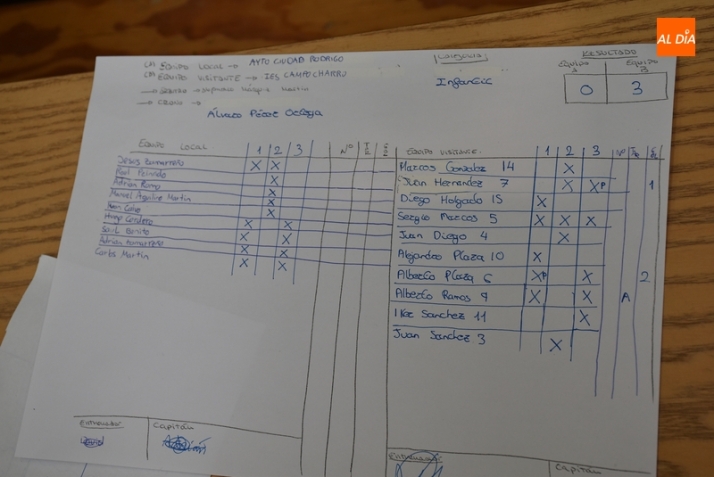 AL DÍA
EQUIPO LOCAL → AYTO CIUDAD RODRIGO
EQUIPO VISITANTE → IES CAMPO CHARRO
Álvaro Pérez Ortega
CATEGORÍA
Infantil
RESULTADO
EQUIPO A EQUIPO B
0 3
EQUIPO LOCAL 1 2 3 Nº
Jesús X X
Raúl Peinado X
Adrián Ramo X
Manuel Martín X
X
Hugo Cordero X X
Saúl Benito X X
Adrián X X
Carlos Martín X X
Entrenador Capitán
EQUIPO VISITANTE 1 2 3 Nº
Marcos Gonzalez 14 X
Juan Hernandez 7 X XP 1
Diego Holgado 15 X
Sergio Marcos 5 X X X
Juan Diego 4 X
Alejandro Plaza 10 X
Alberto Plaza 6 XP X 2
Alberto Ramos 9 X X A
Iker Sanchez 11 X
Juan Sanchez 3 X
Entrenador Capitán